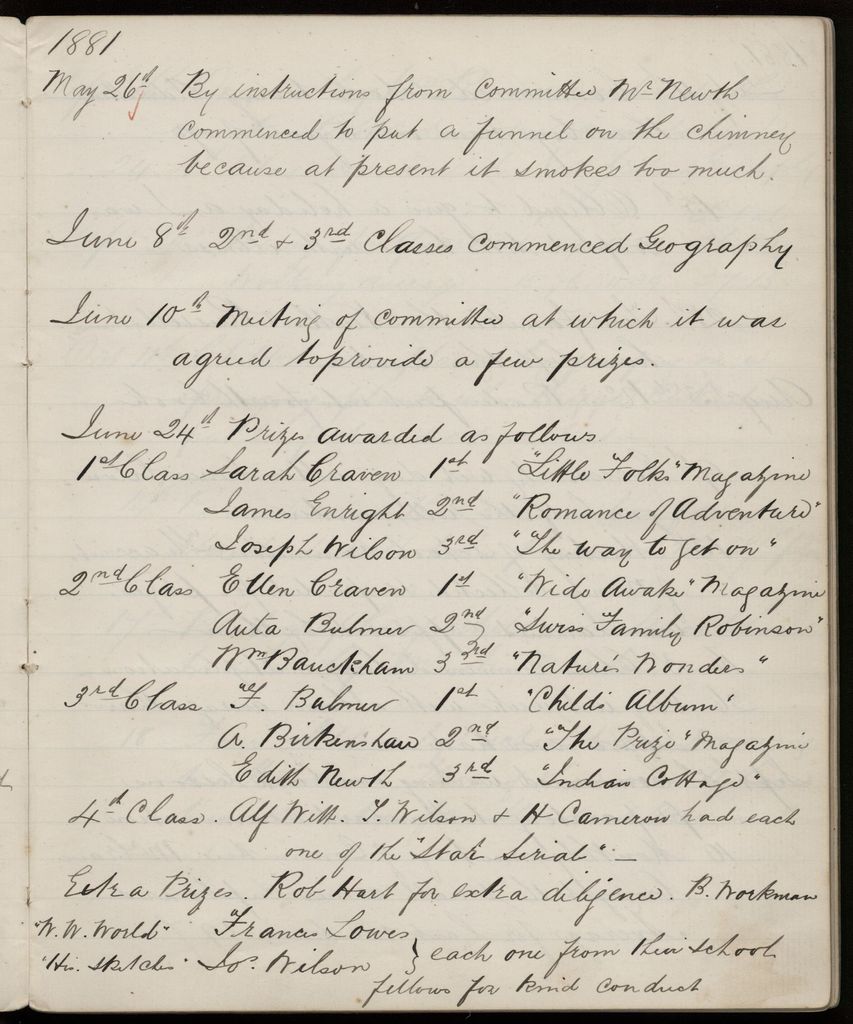 1881
May 26th By instructions from Committee Mr Newth
commenced to put a funnel on the chimney
because at present it smokes too much.
June 8th 2nd & 3rd Classes Commenced Geography
June 10th Meeting of Committee at which it was
agreed to provide a few prizes.
June 24th Prizes awarded as follows
1st Class Sarah Craven 1st "Little Folks" Magazine
James Enright 2nd "Romance of Adventure"
Joseph Wilson 3rd "The way to get on"
2nd Class Ellen Craven 1st "Wide Awake" Magazine
Bulmer 2nd "Swiss Family Robinson"
Wm Bauckham 3rd "Nature's Wonders"
3rd Class F. Bulmer 1st "Child's Album"
A. Birkenshaw 2nd "The Prize" Magazine
Edith Newth 3rd "Indian Cottage"
4th Class. Alf Witt. T. Wilson & H Cameron had each
one of the "Star Serial". —
Extra Prizes. Rob Hart for extra diligence. B. Workman
"W. W. World" Frances Lowes
"His. Sketches" Jos. Wilson } each one from their school
fellows for kind conduct